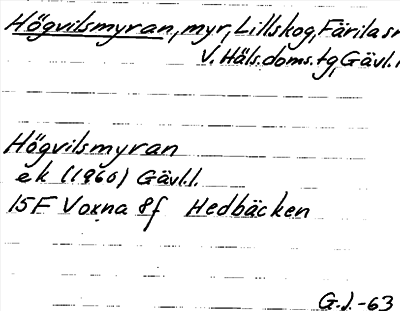 Högvilsmyran, myr, Lillskog, Färila sn
V. Häls. doms. tg, Gävl. l
Högvilsmyran
ek (1966) Gävl.l.
15F Voxna 8f Hedbäcken
G.J.-63